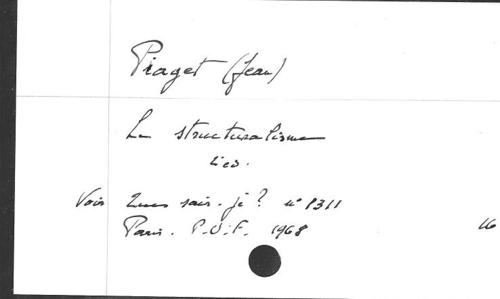 Piaget (Jean)
Le structuralisme
Voir Que sais-je? n° 1311
Paris. P.U.F. 1968